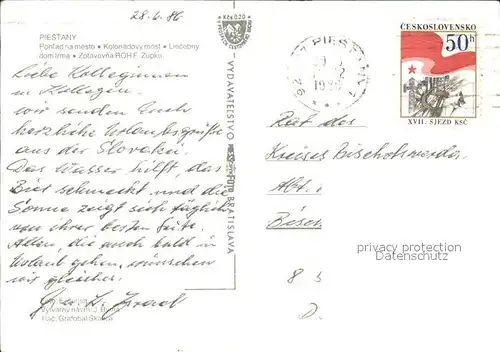 28.6.86
PIEŠŤANY
Pohľad na mesto • Kolonádový most • Liečebný
dom Irma • Zotavovňa ROH F. Zupku
Liebe Kolleginnen
u. Kollegen
wir senden Euch
herzliche Urlaubsgrüße
aus der Slovakei.
Das Wasser hilft, das
Bier schmeckt und die
Sonne zeigt sich täglich
von ihrer besten Seite.
Allen, die auch bald in
Urlaub gehen, wünschen
wir gleiches.
Výtvarný návrh: J.
Tlač: Grafobal Skalica
Kčs 0,20
VYDAVATEĽSTVO
BRATISLAVA
PIEŠŤANY
ČESKOSLOVENSKO
50 h
XVII. SJEZD KSČ
Rat des
Kreises Bischofswerda
Abt.
privacy protection
Datenschutz
8
D.